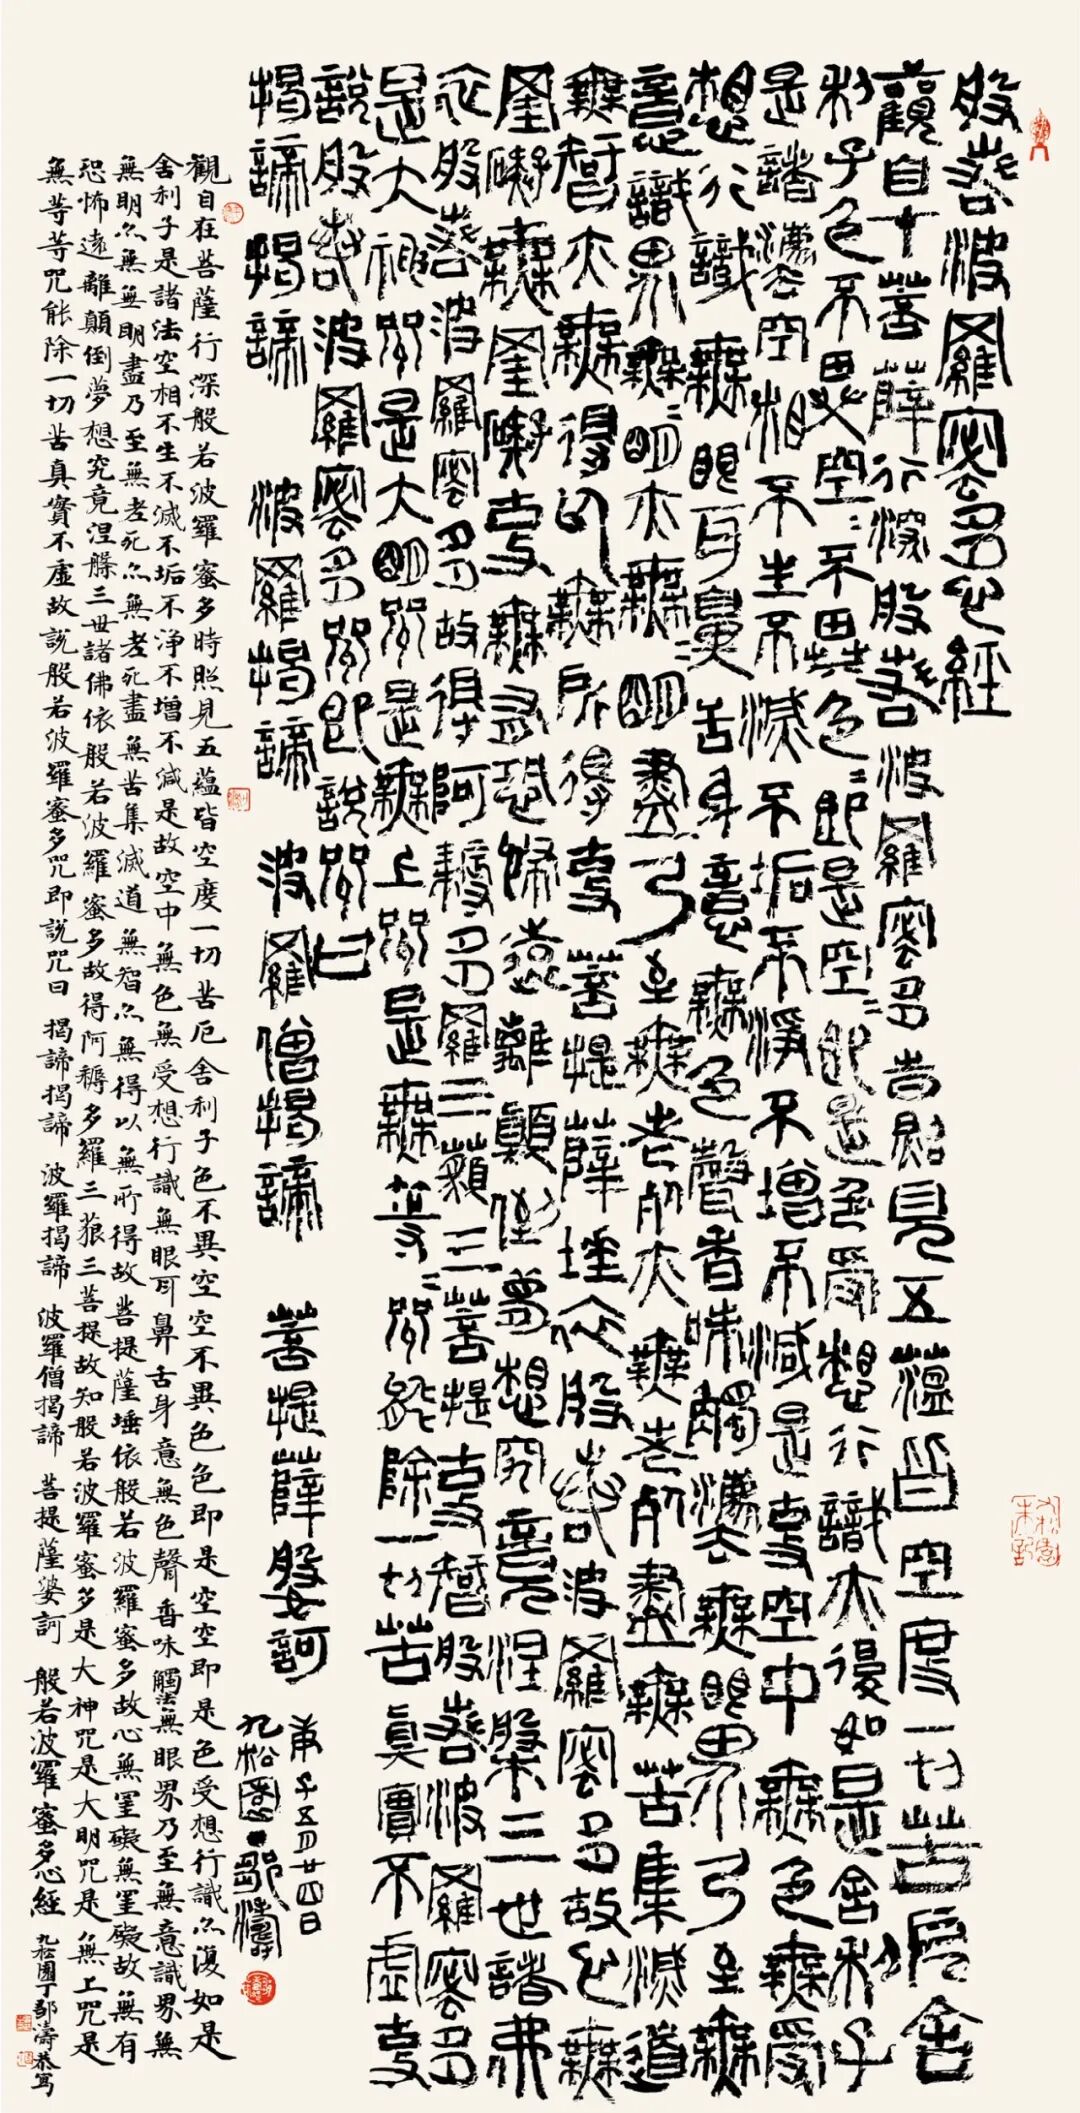 般若波羅密多心經
觀自在菩薩行深般若波羅密多時照見五蘊皆空度一切苦厄舍
利子色不異空〻不異色〻即是空〻即是色受想行識亦復如是舍利子
是諸法空相不生不滅不垢不淨不增不減是故空中無色無受
想行識無眼耳鼻舌身意無色聲香味觸法無眼界乃至無
意識界無〻明亦無〻明盡乃至無老死亦無老死盡無苦集滅道
無智亦無得以無所得故菩提薩埵依般若波羅密多故心無
罣礙無罣礙故無有恐怖遠離顛倒夢想究竟涅槃三世諸佛
依般若波羅密多故得阿耨多羅三藐三菩提故知般若波羅密多
是大神咒是大明咒是無上咒是無等〻咒能除一切苦真實不虛故
說般若波羅密多咒即說咒曰
揭諦揭諦 波羅揭諦 波羅僧揭諦 菩提薩婆訶
庚子五月廿四日
九松園丁邵濤
觀自在菩薩行深般若波羅蜜多時照見五蘊皆空度一切苦厄舍利子色不異空空不異色色即是空空即是色受想行識亦復如是
舍利子是諸法空相不生不滅不垢不淨不增不減是故空中無色無受想行識無眼耳鼻舌身意無色聲香味觸法無眼界乃至無意識界無
無明亦無無明盡乃至無老死亦無老死盡無苦集滅道無智亦無得以無所得故菩提薩埵依般若波羅蜜多故心無罣礙無罣礙故無有
恐怖遠離顛倒夢想究竟涅槃三世諸佛依般若波羅蜜多故得阿耨多羅三藐三菩提故知般若波羅蜜多是大神咒是大明咒是無上咒是
無等等咒能除一切苦真實不虛故說般若波羅蜜多咒即說咒曰 揭諦揭諦 波羅揭諦 波羅僧揭諦 菩提薩婆訶 般若波羅蜜多心經 九松園丁邵濤恭寫